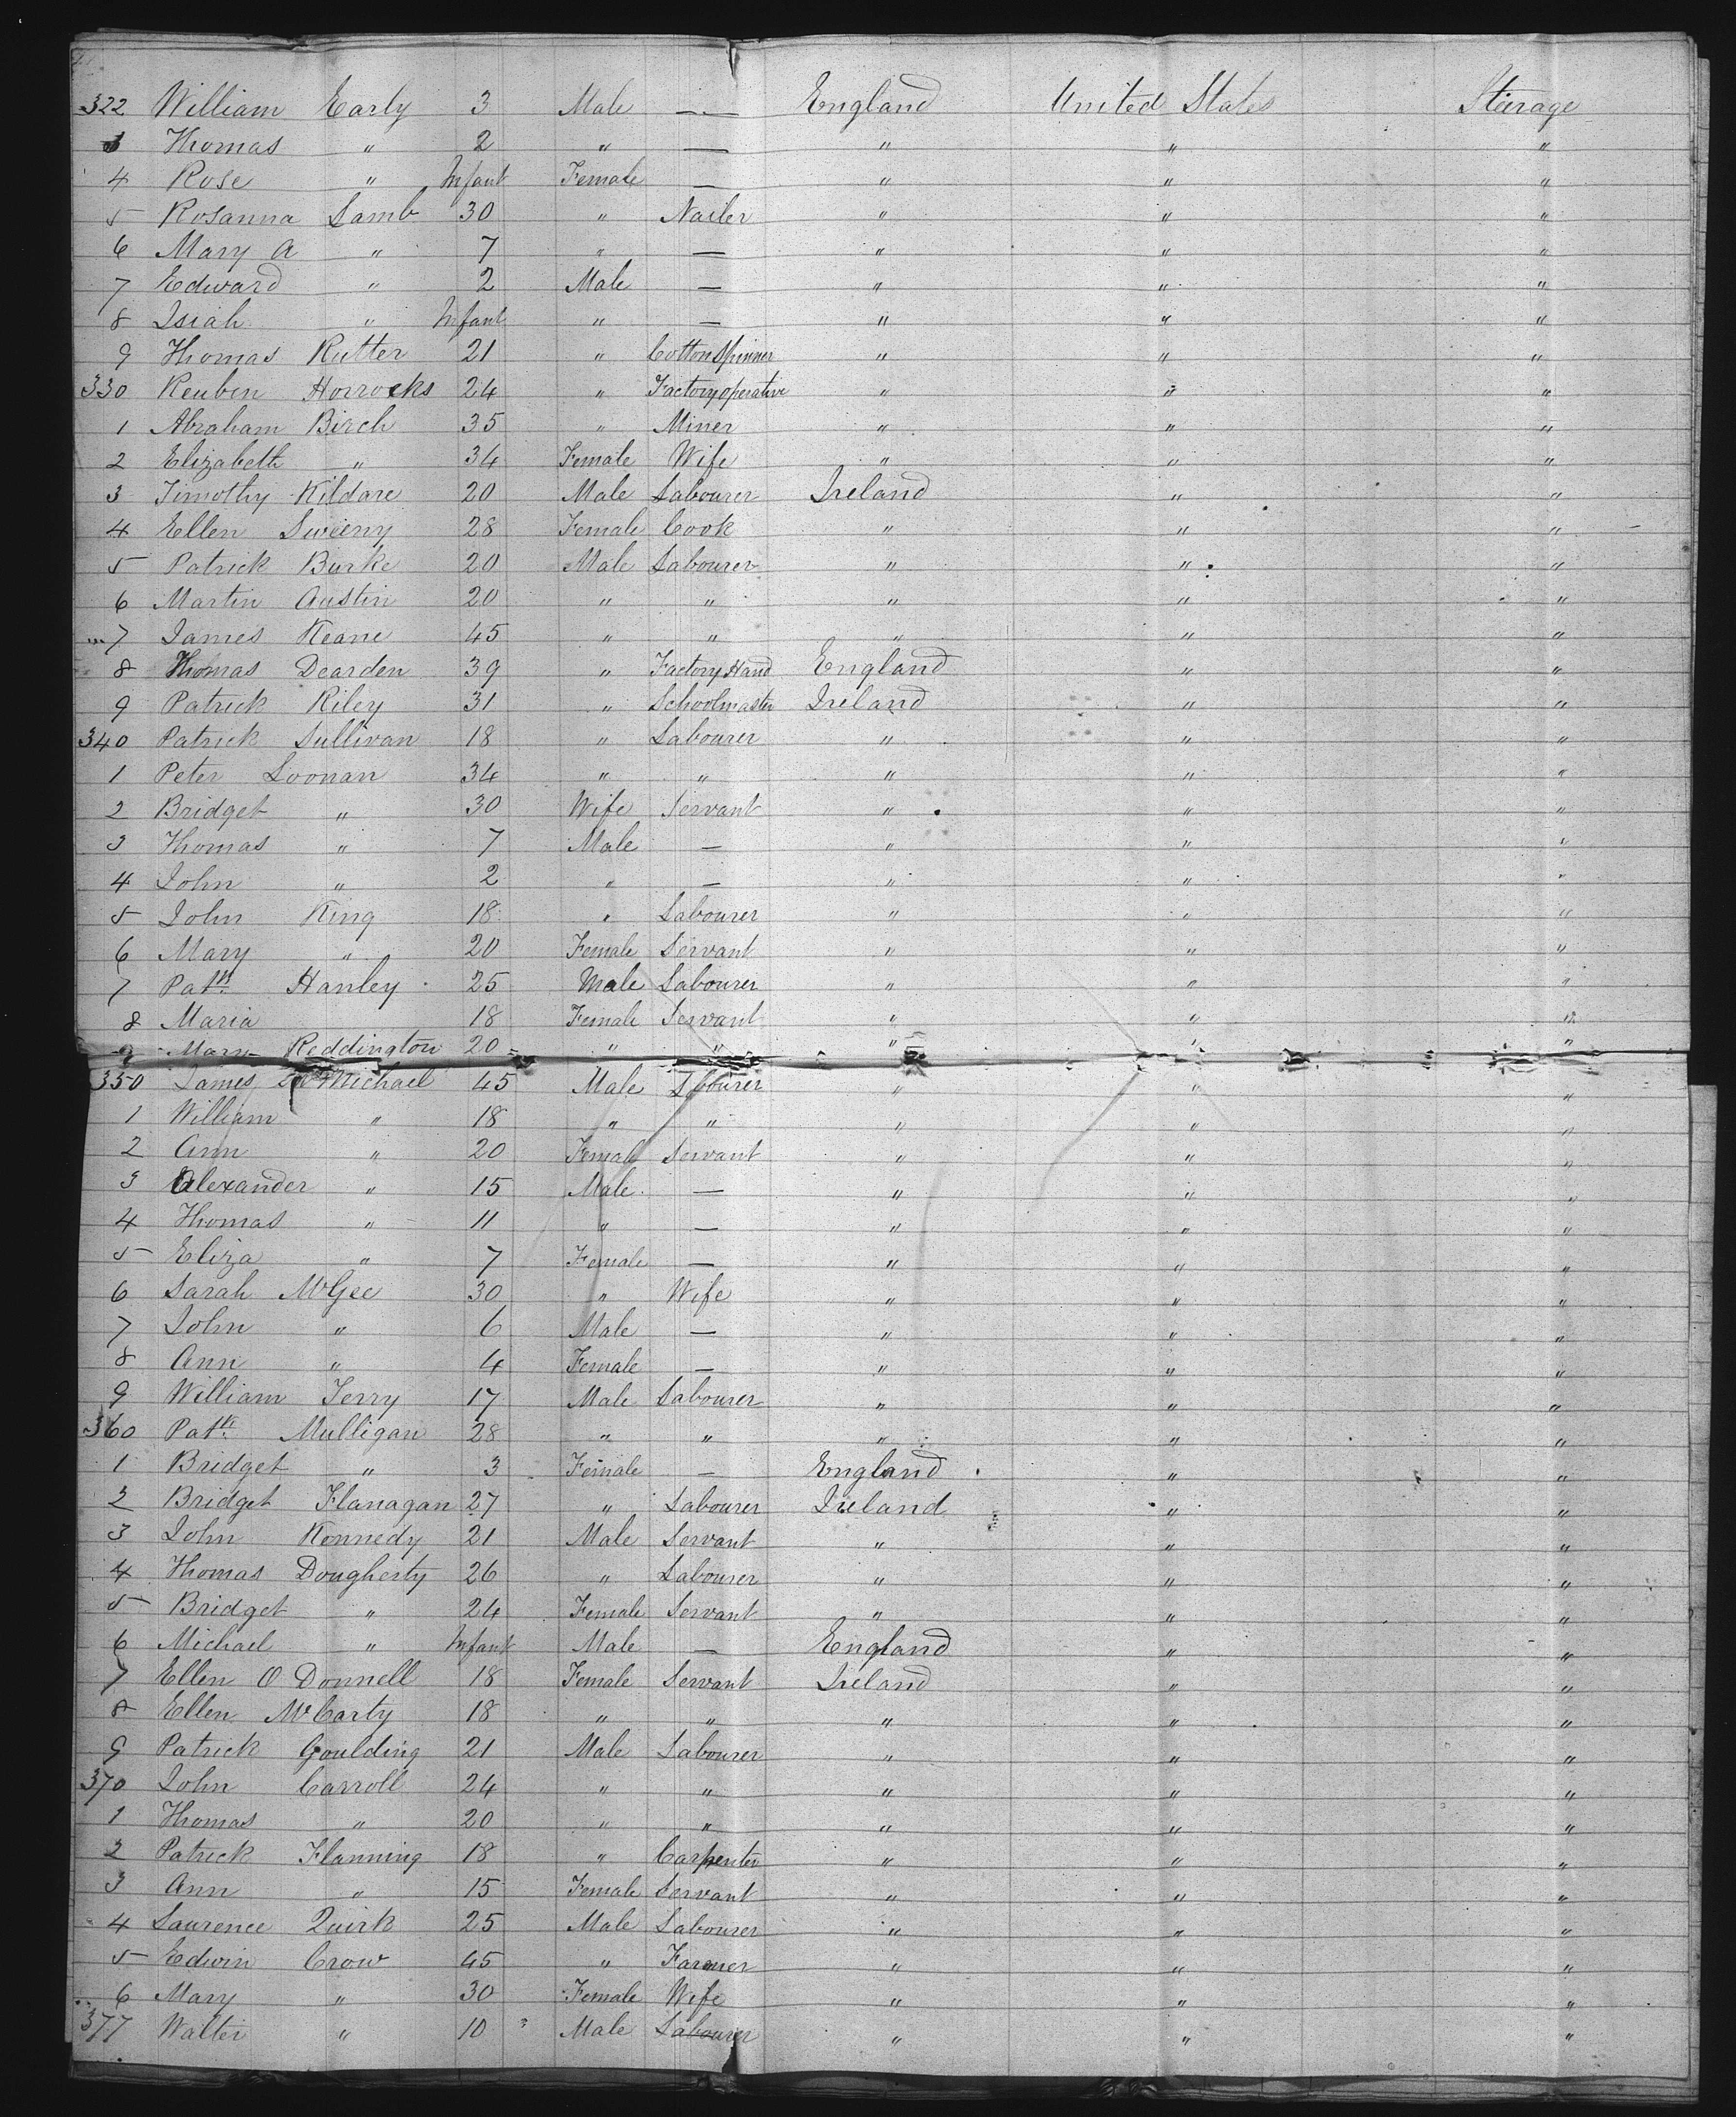 322 William Early 3 Male — England United States Steerage
3 Thomas " 2 " — " " "
4 Rose " Infant Female — " " "
5 Rosanna Lamb 30 " Nailer " " "
6 Mary A " 7 " — " " "
7 Edward " 2 Male — " " "
8 Isiah " Infant " — " " "
9 Thomas Rutter 21 " Cotton Spinner " " "
330 Reuben Horrocks 24 " Factory operative " " "
1 Abraham Birch 35 " Miner " " "
2 Elizabeth " 34 Female Wife " " "
3 Timothy Kildare 20 Male Labourer Ireland " "
4 Ellen Sweeny 28 Female Cook " " "
5 Patrick Burke 20 Male Labourer " " "
6 Martin Austin 20 " " " " "
7 James Keane 45 " " " " "
8 Thomas Dearden 39 " Factory Hand England " "
9 Patrick Riley 31 " Schoolmaster Ireland " "
340 Patrick Sullivan 18 " Labourer " " "
1 Peter Loonan 34 " " " " "
2 Bridget " 30 Wife Servant " " "
3 Thomas " 7 Male — " " "
4 John " 2 " — " " "
5 John King 18 " Labourer " " "
6 Mary " 20 Female Servant " " "
7 Patk Hanley 25 Male Labourer " " "
8 Maria 18 Female Servant " " "
9 Mary Reddington 20 " " " " "
350 James Michael 45 Male Labourer " " "
1 William " 18 " " " " "
2 Ann " 20 Female Servant " " "
3 Alexander " 15 Male — " " "
4 Thomas " 11 " — " " "
5 Eliza " 7 Female — " " "
6 Sarah McGee 30 " Wife " " "
7 John " 6 Male — " " "
8 Ann " 4 Female — " " "
9 William Terry 17 Male Labourer " " "
360 Patk Mulligan 28 " " " " "
1 Bridget " 3 Female — England " "
2 Bridget Flanagan 27 " Labourer Ireland " "
3 John Kennedy 21 Male Servant " " "
4 Thomas Dougherty 26 " Labourer " " "
5 Bridget " 24 Female Servant " " "
6 Michael " Infant Male — England " "
7 Ellen O Donnell 18 Female Servant Ireland " "
8 Ellen McCarty 18 " " " " "
9 Patrick Goulding 21 Male Labourer " " "
370 John Carroll 24 " " " " "
1 Thomas " 20 " " " " "
2 Patrick Flanning 18 " Carpenter " " "
3 Ann " 15 Female Servant " " "
4 Laurence Quirk 25 Male Labourer " " "
5 Edwin Crow 45 " Farmer " " "
6 Mary " 30 Female Wife " " "
377 Walter " 10 Male Labourer " " "